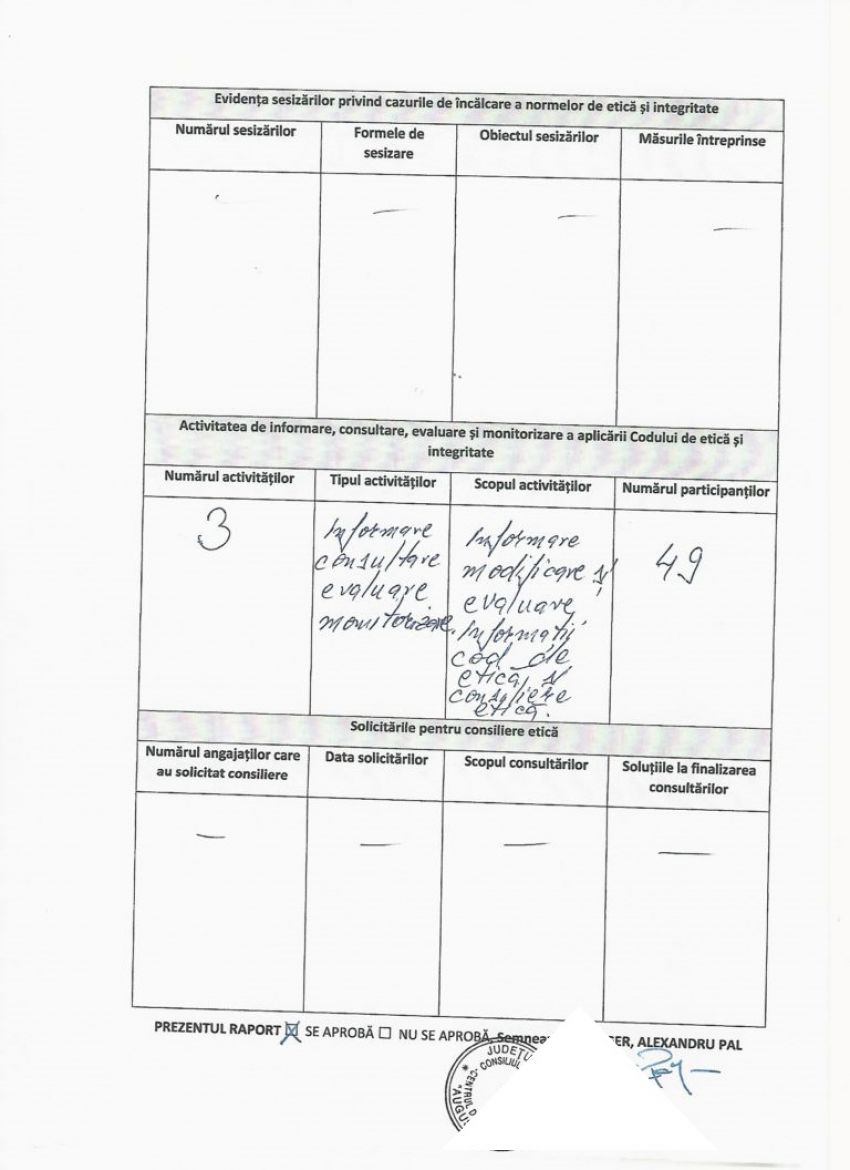 Evidența sesizărilor privind cazurile de încălcare a normelor de etică și integritate
Numărul sesizărilor
Formele de
sesizare
Obiectul sesizărilor
Măsurile întreprinse
—
—
—
Activitatea de informare, consultare, evaluare și monitorizare a aplicării Codului de etică și
integritate
Numărul activităților
Tipul activităților
Scopul activităților
Numărul participanților
3
Informare
consultare
evaluare
monitorizare.
Informare
modificare și
evaluare
Informații
cod de
etică și
consiliere
etică.
49
Solicitările pentru consiliere etică
Numărul angajaților care
au solicitat consiliere
Data solicitărilor
Scopul consultărilor
Soluțiile la finalizarea
consultărilor
—
—
—
—
PREZENTUL RAPORT ☒ SE APROBĂ ☐ NU SE APROBĂ, Semnea ER, ALEXANDRU PAL
JUDEȚU
CONSILIUL
CENTRUL D
"AUGU